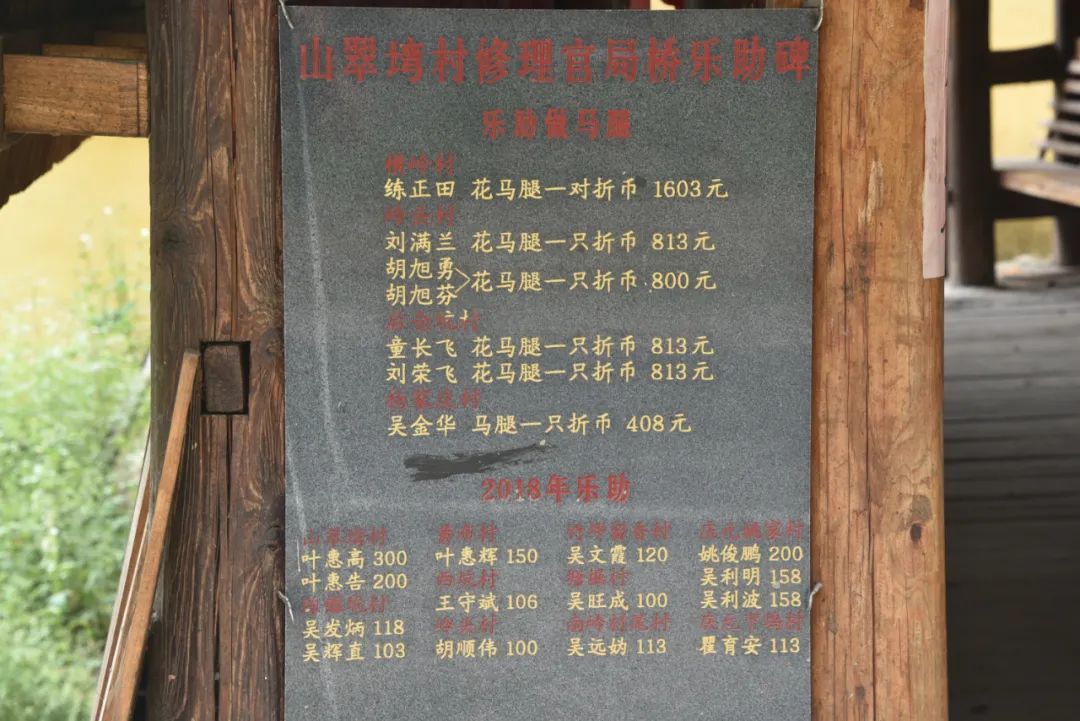 山翠塆村修理官局桥乐助碑
乐助做马腿
横岭村
练正田 花马腿一对折币 1603元
岭头村
刘满兰 花马腿一只折币 813元
胡旭勇
花马腿一只折币 800元
胡旭芬
童长飞 花马腿一只折币 813元
刘荣飞 花马腿一只折币 813元
杨家庄村
吴金华 马腿一只折币 408元
2018年乐助
山翠塆村
叶惠高 300
叶惠告 200
吴发炳 118
吴辉直 103
叶惠辉 150
西坑村
王守斌 106
岭头村
胡顺伟 100
吴文霞 120
吴旺成 100
吴远妫 113
庆元姚家村
姚俊鹏 200
吴利明 158
吴利波 158
瞿育安 113